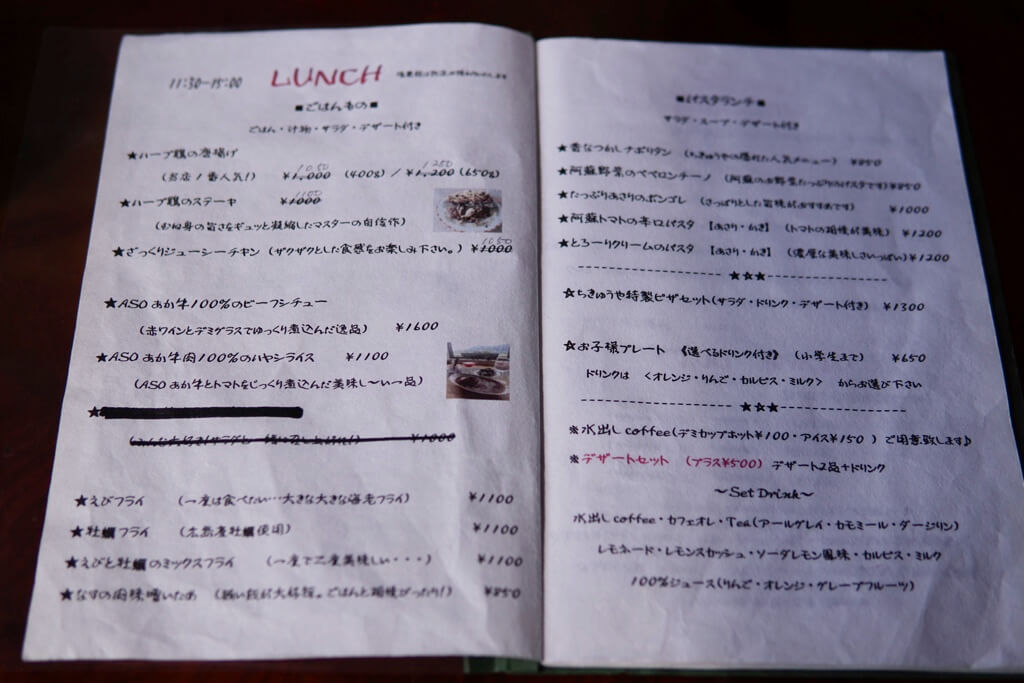 11:30-15:00 LUNCH
■ごはんもの■
ごはん・汁物・サラダ・デザート付き
★ハーブ鶏の唐揚げ
1050 1250
(お店1番人気!) ¥1,000 (400g) / ¥1,200 (650g)
1100
★ハーブ鶏のステーキ ¥1000
(むね身の旨さをギュッと凝縮したマスターの自信作)
1050
★ざっくりジューシーチキン (ザクザクとした食感をお楽しみ下さい。) ¥1000
★ASOあか牛100%のビーフシチュー
(赤ワインとデミグラスでゆっくり煮込んだ逸品) ¥1600
★ASOあか牛肉100%のハヤシライス ¥1100
(ASOあか牛とトマトをじっくり煮込んだ美味し〜い一品)
★
¥1000
★えびフライ (一度は食べたい…大きな大きな海老フライ) ¥1100
★牡蠣フライ (天然産牡蠣使用) ¥1100
★えびと牡蠣のミックスフライ (一度で二度美味しい・・・) ¥1100
★なすの肉味噌いため ¥850
■パスタランチ■
サラダ・スープ・デザート付き
★昔なつかしナポリタン (ちきゅうやの隠れた人気メニュー) ¥850
★阿蘇野菜のペペロンチーノ (阿蘇のお野菜たっぷりのパスタです) ¥850
★たっぷりあさりのボンゴレ (さっぱりとした旨味がおすすめです) ¥1000
★阿蘇トマトの辛口パスタ 【あさり・かき】 (トマトの相性が美味) ¥1200
★とろーりクリームのパスタ 【あさり・かき】 (濃厚な美味しさいっぱい) ¥1200
★★★
☆ちきゅうや特製ピザセット(サラダ・ドリンク・デザート付き) ¥1300
☆お子様プレート 《選べるドリンク付き》 (小学生まで) ¥650
ドリンクは 〈オレンジ・りんご・カルピス・ミルク〉 からお選び下さい
★★★
※水出しcoffee(デミカップホット¥100・アイス¥150) ご用意致します♪
※デザートセット (プラス¥500) デザート2品+ドリンク
〜Set Drink〜
水出しcoffee・カフェオレ・Tea(アールグレイ・カモミール・ダージリン)
レモネード・レモンスカッシュ・ソーダレモン風味・カルピス・ミルク
100%ジュース(りんご・オレンジ・グレープフルーツ)